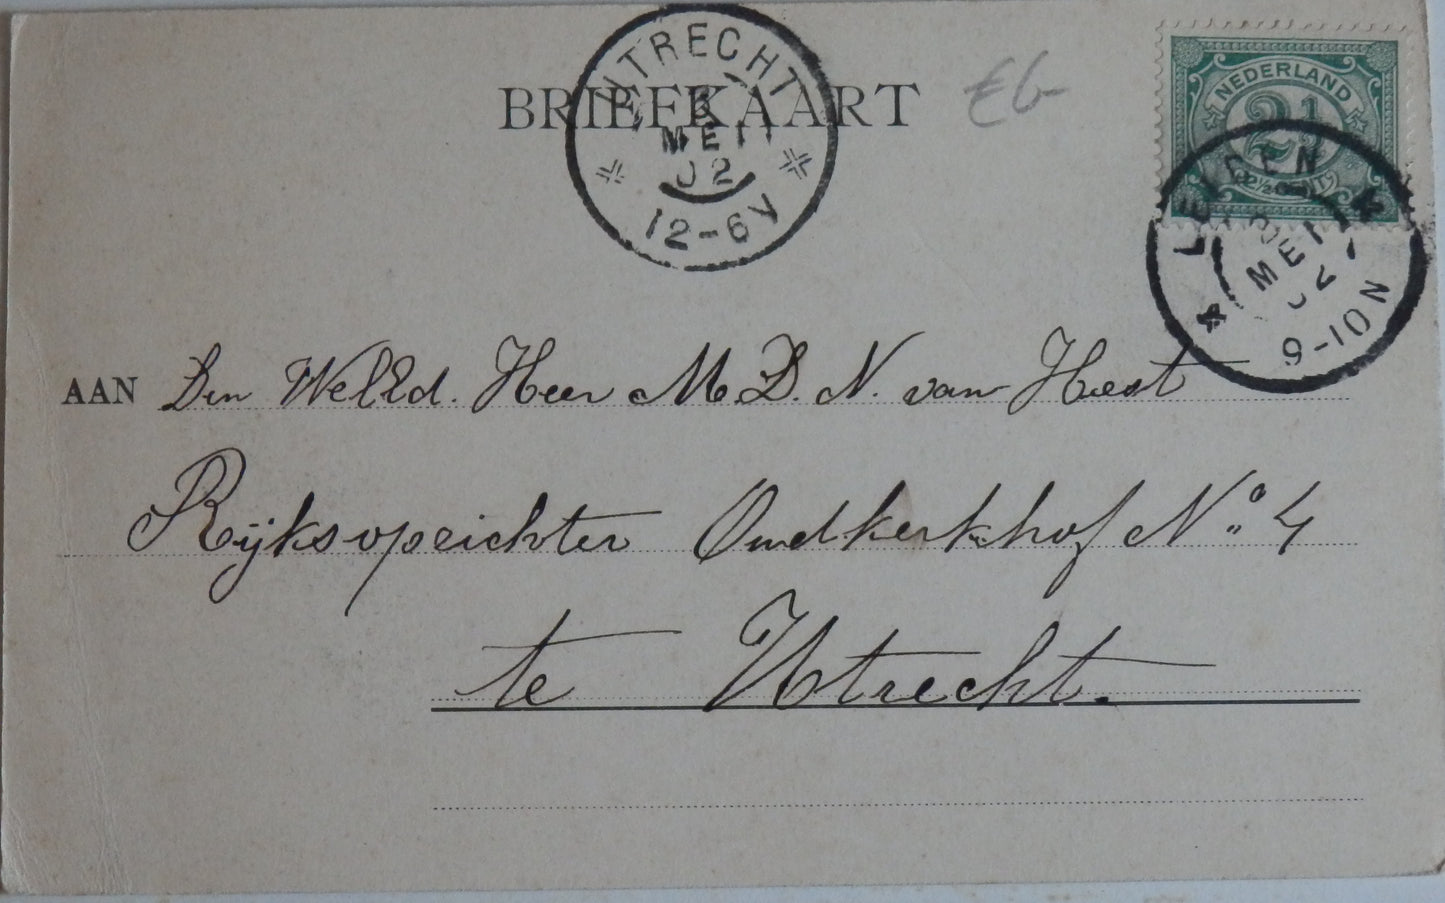 BRIEFKAART
UTRECHT
3
MEI
02
12-6V
€6-
NEDERLAND
2½
(2½ CENT)
LEIDEN
MEI
9-10N
AAN Den WelEd. Heer M. D. N. van Heest
Rijksopzichter Oudkerkhof No. 4
te Utrecht.